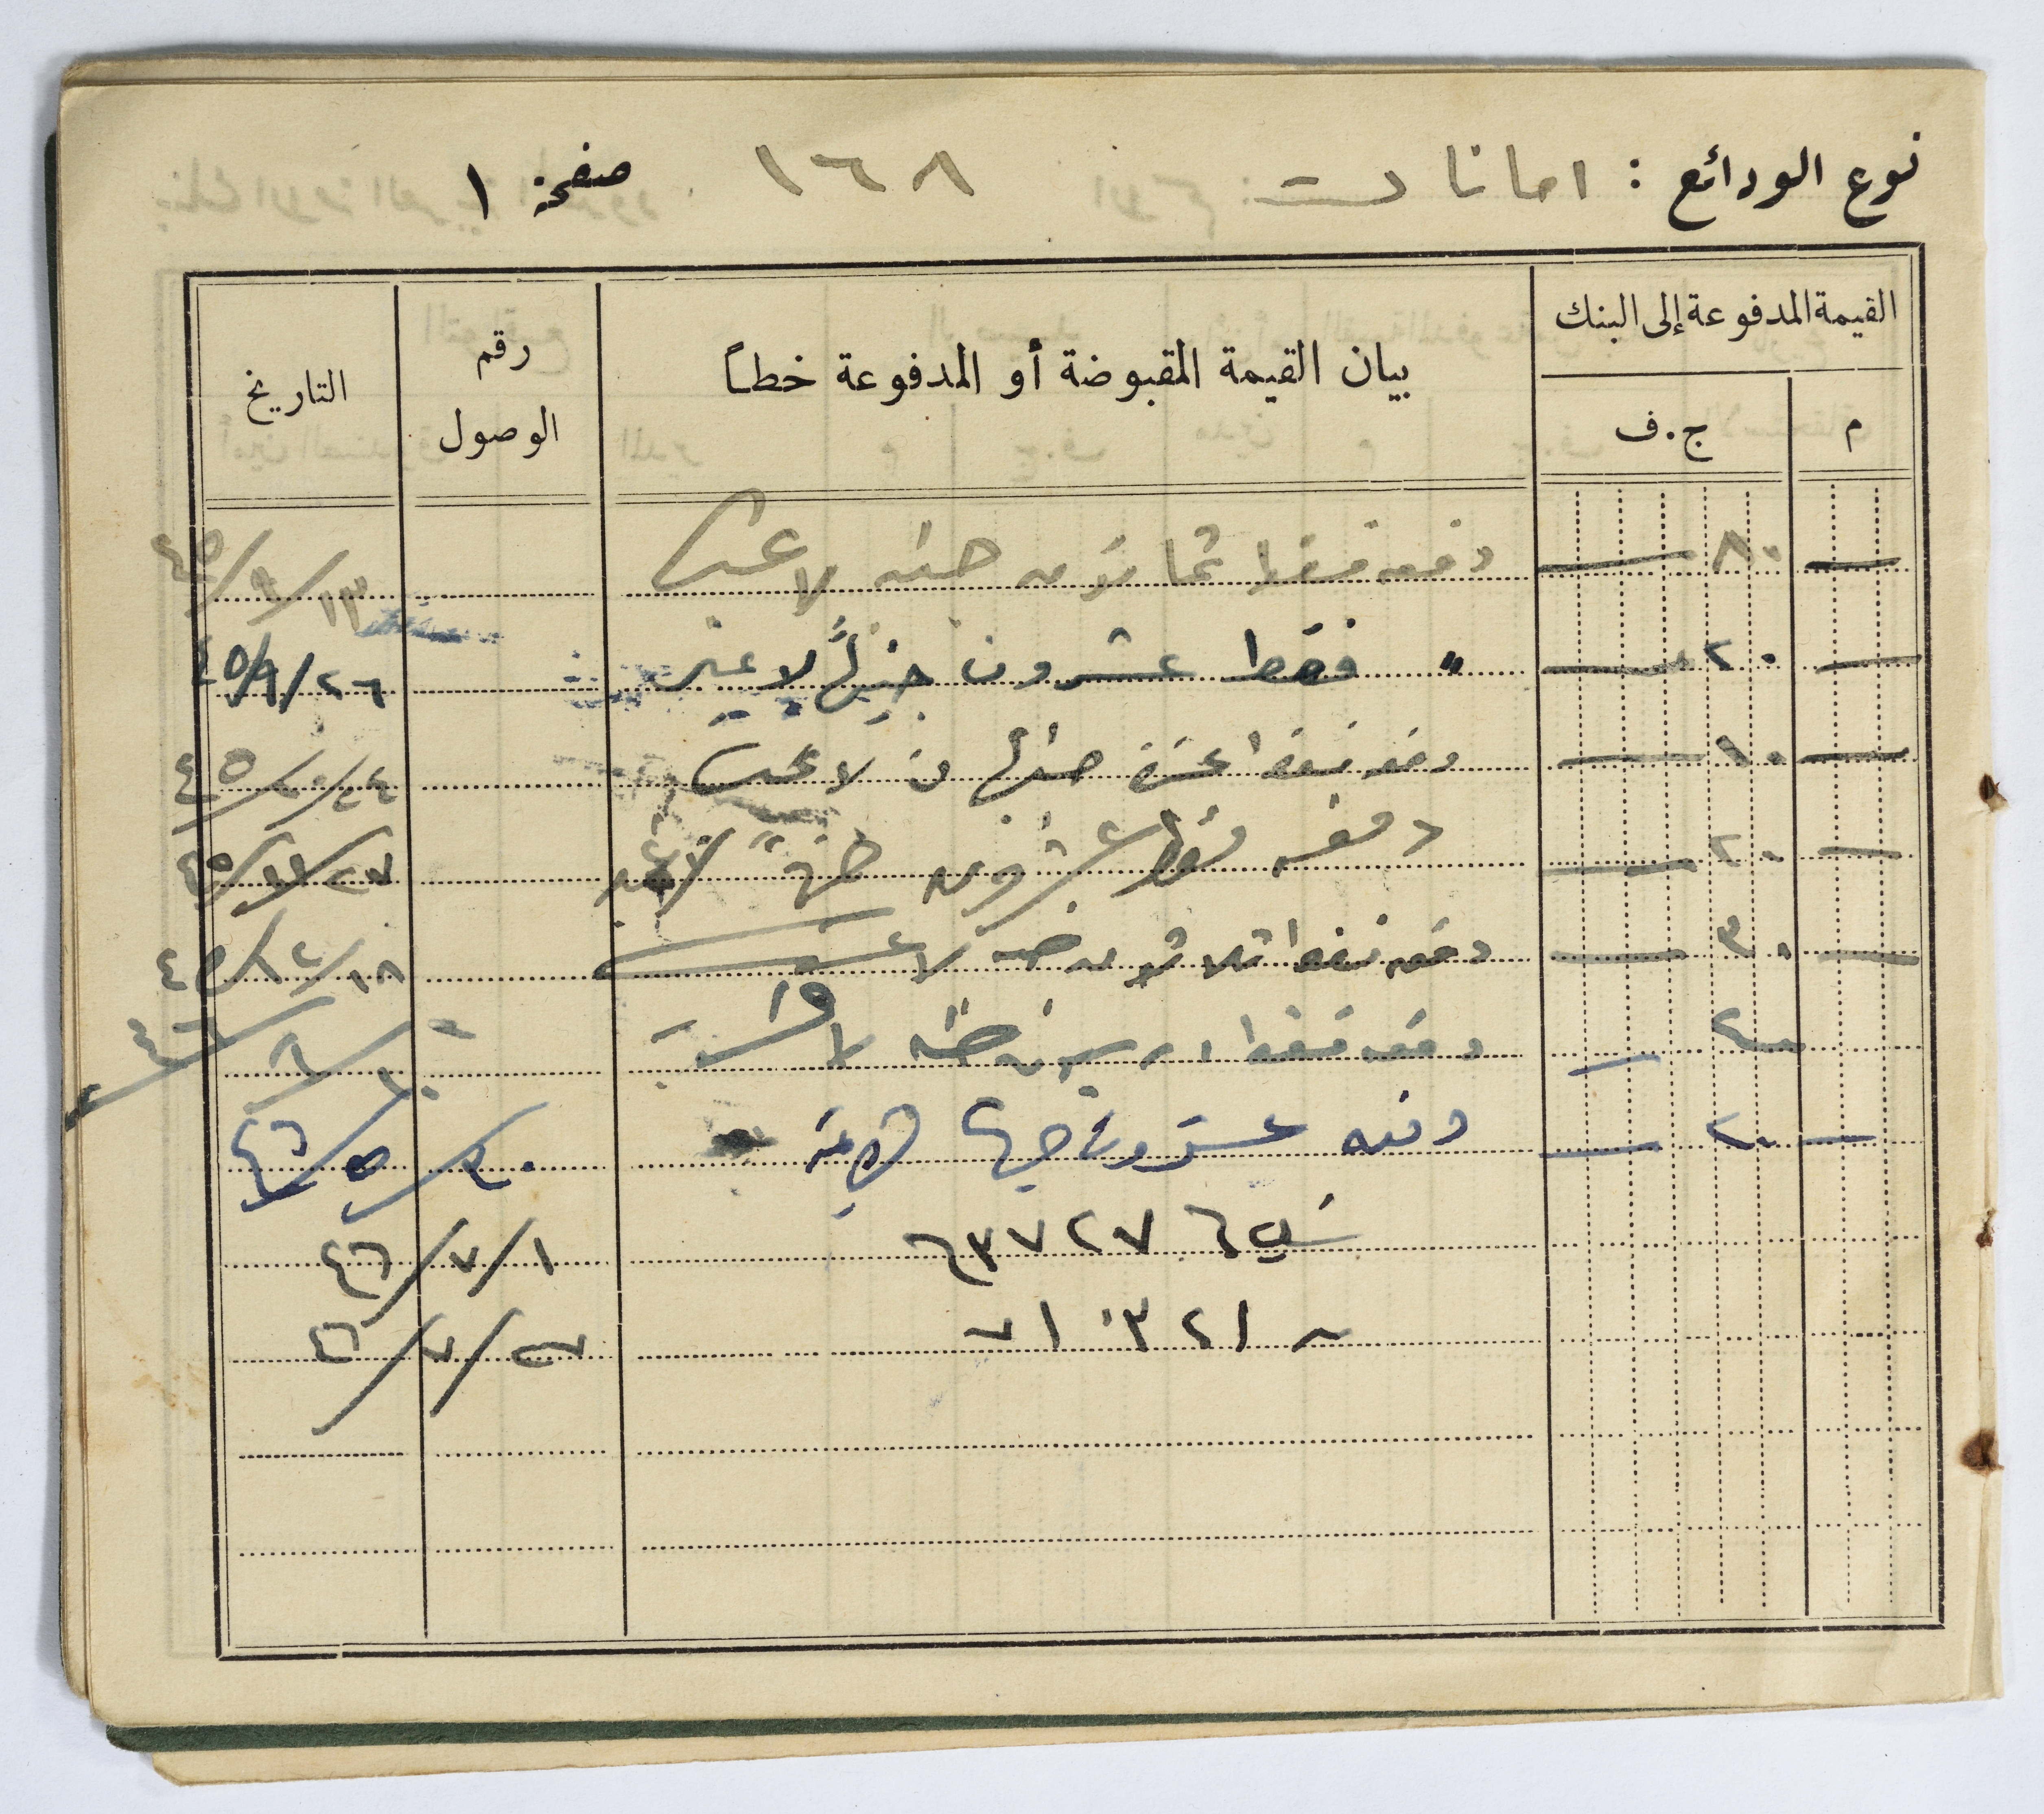 نوع الودائع : امانات ١٦٨ صفحة ١
القيمة المدفوعة إلى البنك
م ج.ف بيان القيمة المقبوضة أو المدفوعة خطاً رقم الوصول التاريخ
— ٨٠ — دفعه فقط ثمانون جنيه لا غير ١٣/٩/٤٥
— ٢٠ — " فقط عشرون جنيهاً لا غير ٢٦/٩/٤٥
— ١٠ — دفعه فقط عشرة جنيهات لا غير ٢٤/١٠/٤٥
— ٢٠ — دفعه فقط عشرون جنيهاً لا غير ٢٧/١١/٤٥
— ٣٠ — دفعه فقط ثلاثون جنيه لا غير ١٨/١٢/٤٥
دفعه فقط
— ٢٠ — دفعه عشرون جنيها لا غير ٣٠/٥/٤٦
٦٣٧٢٧ ١/٧/٤٦
٢٧/٧/٤٦